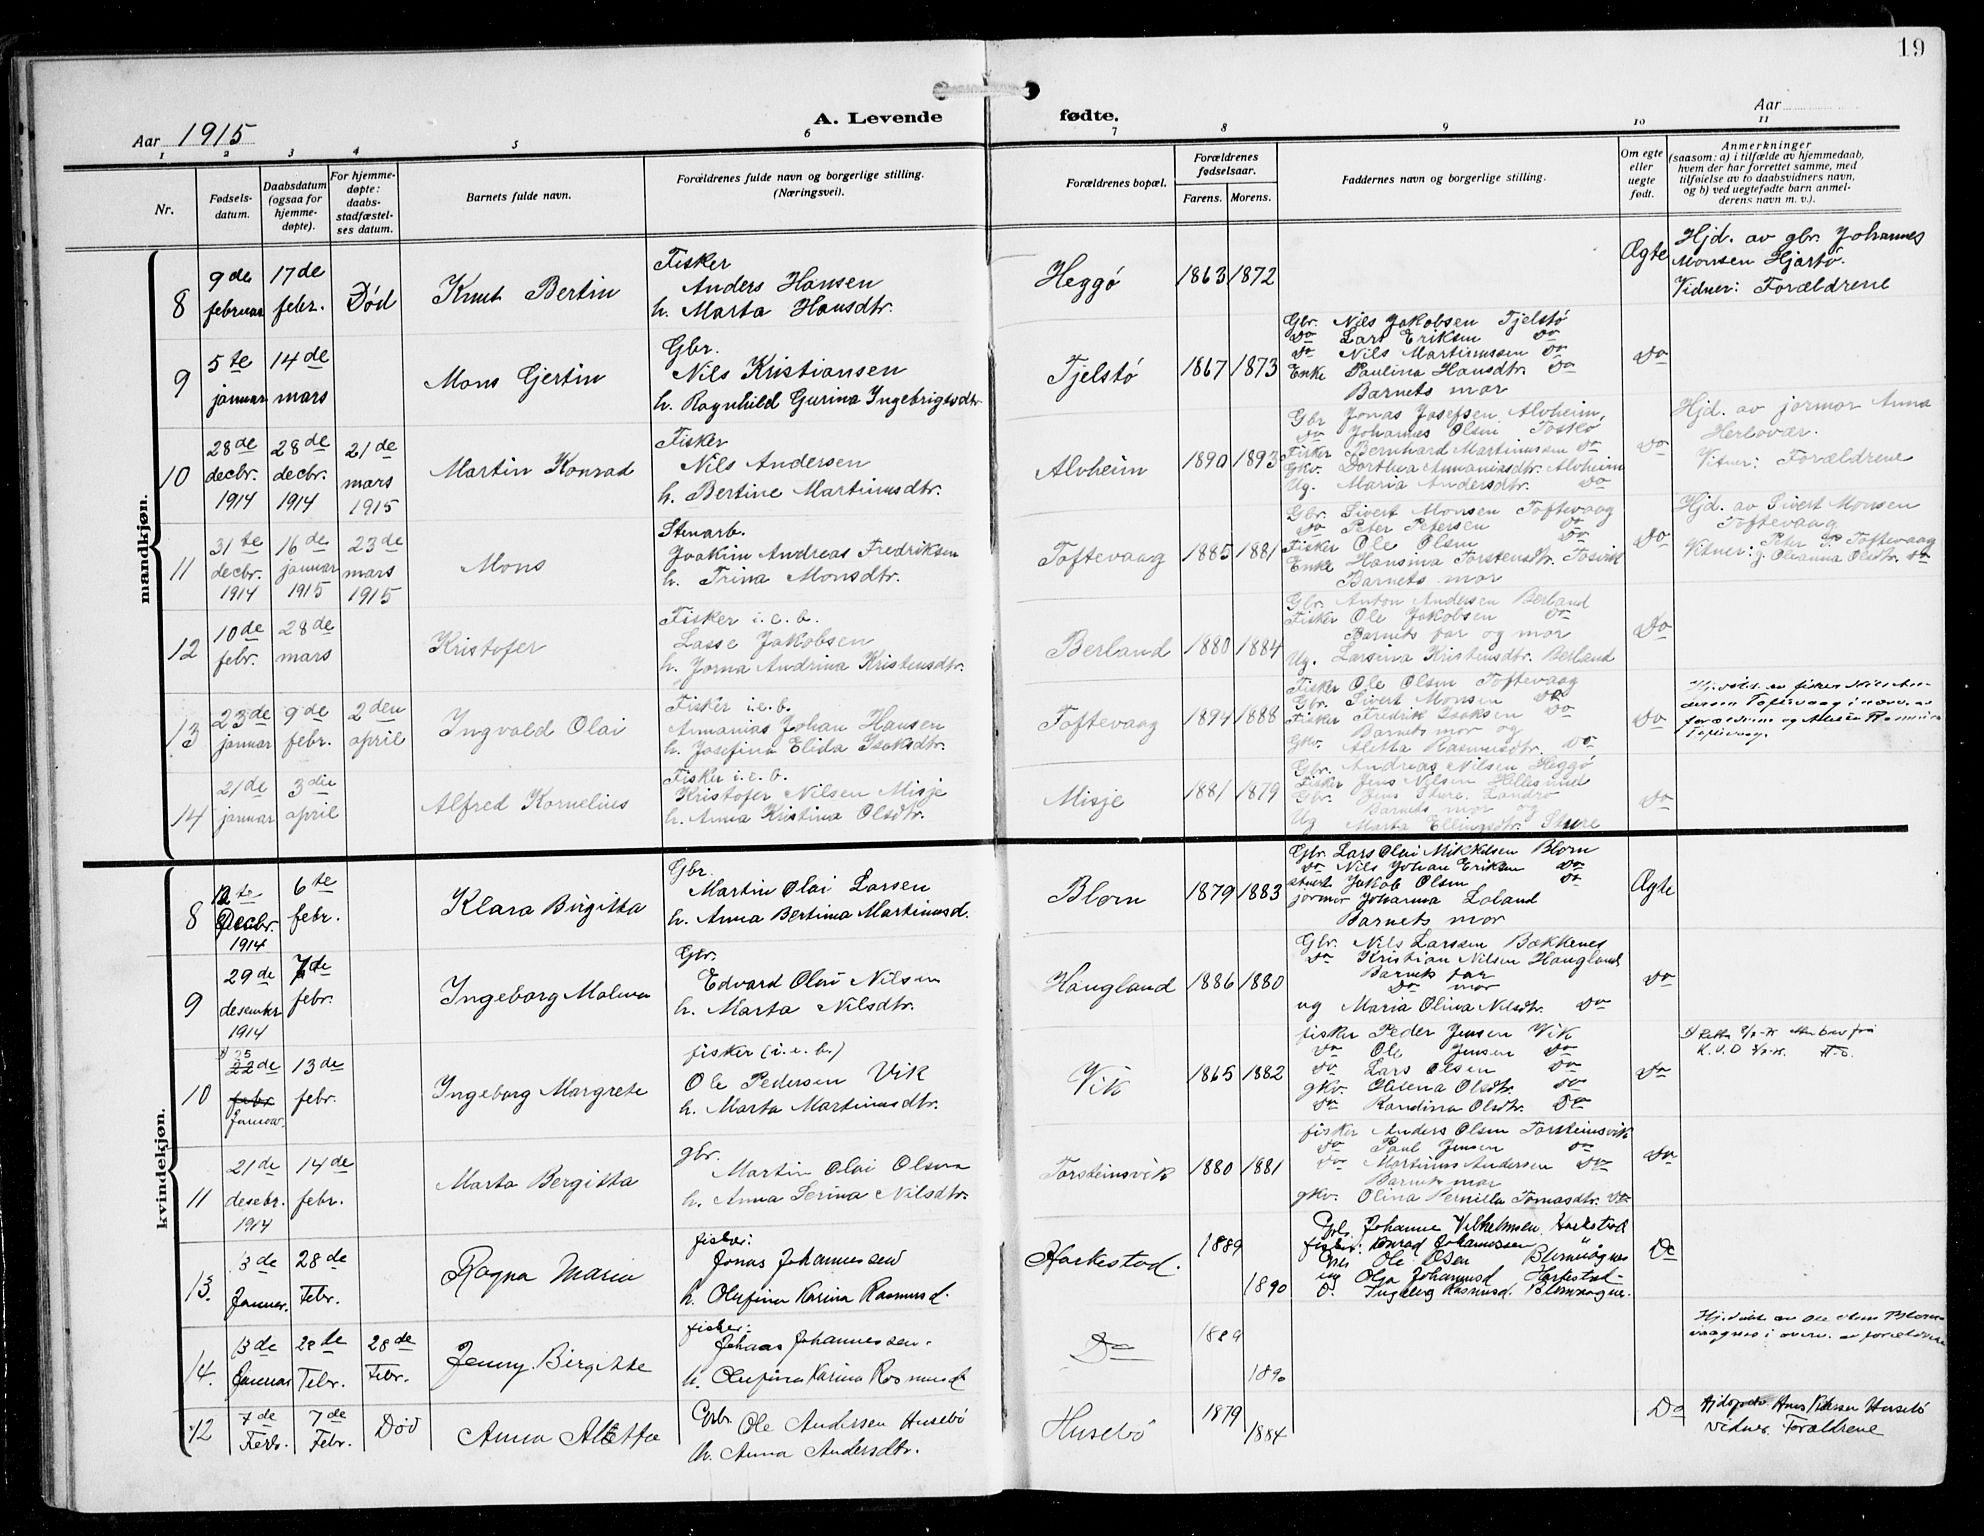 19
Aar 1915
A. Levende fødte.
Aar
1 2 3 4 5 6 7 8 9 10 11
Nr.
Fødsels-
datum.
Daabsdatum
(ogsaa for
hjemme-
døpte).
For hjemme-
døpte:
daabs-
stadfæstel-
ses datum.
Barnets fulde navn.
Forældrenes fulde navn og borgerlige stilling.
(Næringsvei).
Forældrenes bopæl.
Forældrenes
fødselsaar.
Farens. Morens.
Faddernes navn og borgerlige stilling.
Om egte
eller
uegte
født.
Anmerkninger
(saasom: a) i tilfælde av hjemmedaab,
hvem der har forrettet samme, med
tilføielse av to daabsvidners navn,
og b) ved uegtefødte barn anmel-
derens navn m. v.).
mandkjøn.
8
9de
februar
17de
febr.
Død
Knut Bertin
Fisker
Anders Hansen
h. Marta Hansdtr.
Heggø
1863 1872
Ægte
Hjd. av gbr. Johannes
Monsen Hjartø.
Vidner: Forældrene
9
5te
januar
14de
mars
Mons Gjertin
Gbr.
Nils Kristiansen
h. Ragnhild Gurina Ingebrigtsdtr
Tjelstø
1867 1873
Gbr. Nils Jakobsen Tjelstø
do Lars Eriksen do
do Nils Martinussen do
Enke Paulina Hansdtr. do
Barnets mor
do
10
28de
decbr.
1914
28de
decbr.
1914
21de
mars
1915
Martin Konrad
Fisker
Nils Andersen
h. Bertine Martinusdtr.
Alvheim
1890 1893
Gbr Jonas Josefsen Alvheim,
do Johannes Olsen Toskø
Fisker Bernhard Martinussen do
Gkv. Dorthea Ananiasdtr. Alvheim
Ug. Maria Andersdtr. do
do
Hjd. av jormor Anna
Herlovær.
Vitner: Forældrene
11
31te
decbr.
1914
16de
januar
1915
23de
mars
1915
Mons
Stenarb.
Joakim Andreas Fredriksen
h. Trina Monsdtr.
Toftevaag
1885 1881
Gbr. Sivert Monsen Toftevaag
do Peter Petersen do
Fisker Ole Olsen do
Enke Hansina Torstensdtr. Tosvik
Barnets mor
do
Hjd. av Sivert Monsen
Toftevaag
Vitner: Peter Toftevaag
Olianna Olsdtr. do
12
10de
febr.
28de
mars
Kristofer
Fisker i.e.b.
Lasse Jakobsen
h. Jorna Andrina Kristensdtr.
Berland
1880 1884
Gbr. Anton Andersen Berland
Fisker Ole Jakobsen do
Barnets far og mor
Ug. Larsina Kristensdtr. Berland
do
13
23de
januar
9de
febr.
2den
april
Ingvald Olai
Fisker i.e.b.
Annanias Johan Hansen
h. Josefina Elida Isaksdtr.
Toftevaag
1894 1888
Fisker Ole Olsen Toftevaag
Gbr. Sivert Monsen do
Fisker Fredrik Isaksen do
Barnets mor og
Gkv. Aletta Rasmusdtr. do
do
Hj.døbt av fisker Nils An-
dersen Toftevaag i nærv. av
forældrene og
Toftevaag.
14
21de
januar
3die
april
Alfred Kornelius
Fisker i.e.b.
Kristofer Nilsen Misje
h. Anna Kristina Olsdtr.
Misje
1881 1879
Gbr. Andreas Nilsen Heggø
Fisker Jens Nilsen Hellesund
Gbr. Jens Sture Landro
Barnets mor og
Ug Marta Ellingsdtr. Sture
do
kvindekjøn.
8
12te
Decbr.
1914
6te
febr.
Klara Birgitta
Gbr.
Martin Olai Larsen
h. Anna Bertina Martinusd.
Blom
1879 1883
Gbr. Lars Olai Mikkelsen Blom
do Nils Johan Eriksen do
Jakob Olsen do
jormor Johanna Loland
Barnets mor
Ægte
9
29de
desember
1914
7de
febr.
Ingeborg Malena
Gbr.
Edvard Olai Nilsen
h. Marta Nilsdtr.
Haugland
1886 1880
Gbr. Nils Larssen Bakkenes
do Kristian Nilsen Haugland
Barnets far
do mor
ug Maria Olina Nilsdtr. do
do
10
25
22de
febr
Januar.
13de
febr.
Ingeborg Margrete
fisker (i.e.b.)
Ole Pedersen Vik
h. Marta Martinusdtr.
Vik
1865 1882
fisker Peder Jensen Vik
do Ole Jensen do
do Lars Olsen do
gkv. Helena Olsdtr. do
do Randina Olsdtr. do
do
11
21de
desebr.
1914
14de
febr.
Marta Bergitta
gbr.
Martin Olai Olsen
h. Anna Serina Nilsdtr.
Torsteinsvik
1880 1881
fisker Anders Olsen Torsteinsvik
do Paul Jensen do
do Martinus Andersen do
Barnets mor
gkv. Olina Pernilla Tomasdtr. do
do
13.
3de
Januar.
28de
Febr.
Ragna Maria
fisker:
Jonas Johannessen
h. Olufina Karina Rasmusd.
Harkestad.
1889
1890
Gbr. Johanne Vilhelmsen Harkestad
fisker: Konrad Johannssen "
Ole Olsen Blomvågnes
ug Olga Johannesd Harkestad
D. Ingeborg Rasmusd. Blomvågnes.
Do
14.
13de
Januar
28te
Febr.
28de
Febr.
Jenny Birgitte
fisker:
Johannessen.
h. Olufina Karina Rasmusd
Do
1889
1890
Hj.døbt av Ole Olsen Blom-
vaagnes i overv. av forældrene
12
7de
Febr.
7de
Febr.
Død
Anna Aletta
Gbr.
Ole Andersen Husebø
h. Anna Andersdtr.
Husebø
1879
1884
Do
Hjdøpt Hans Pedersen Husebø
Vidner. Forældrene